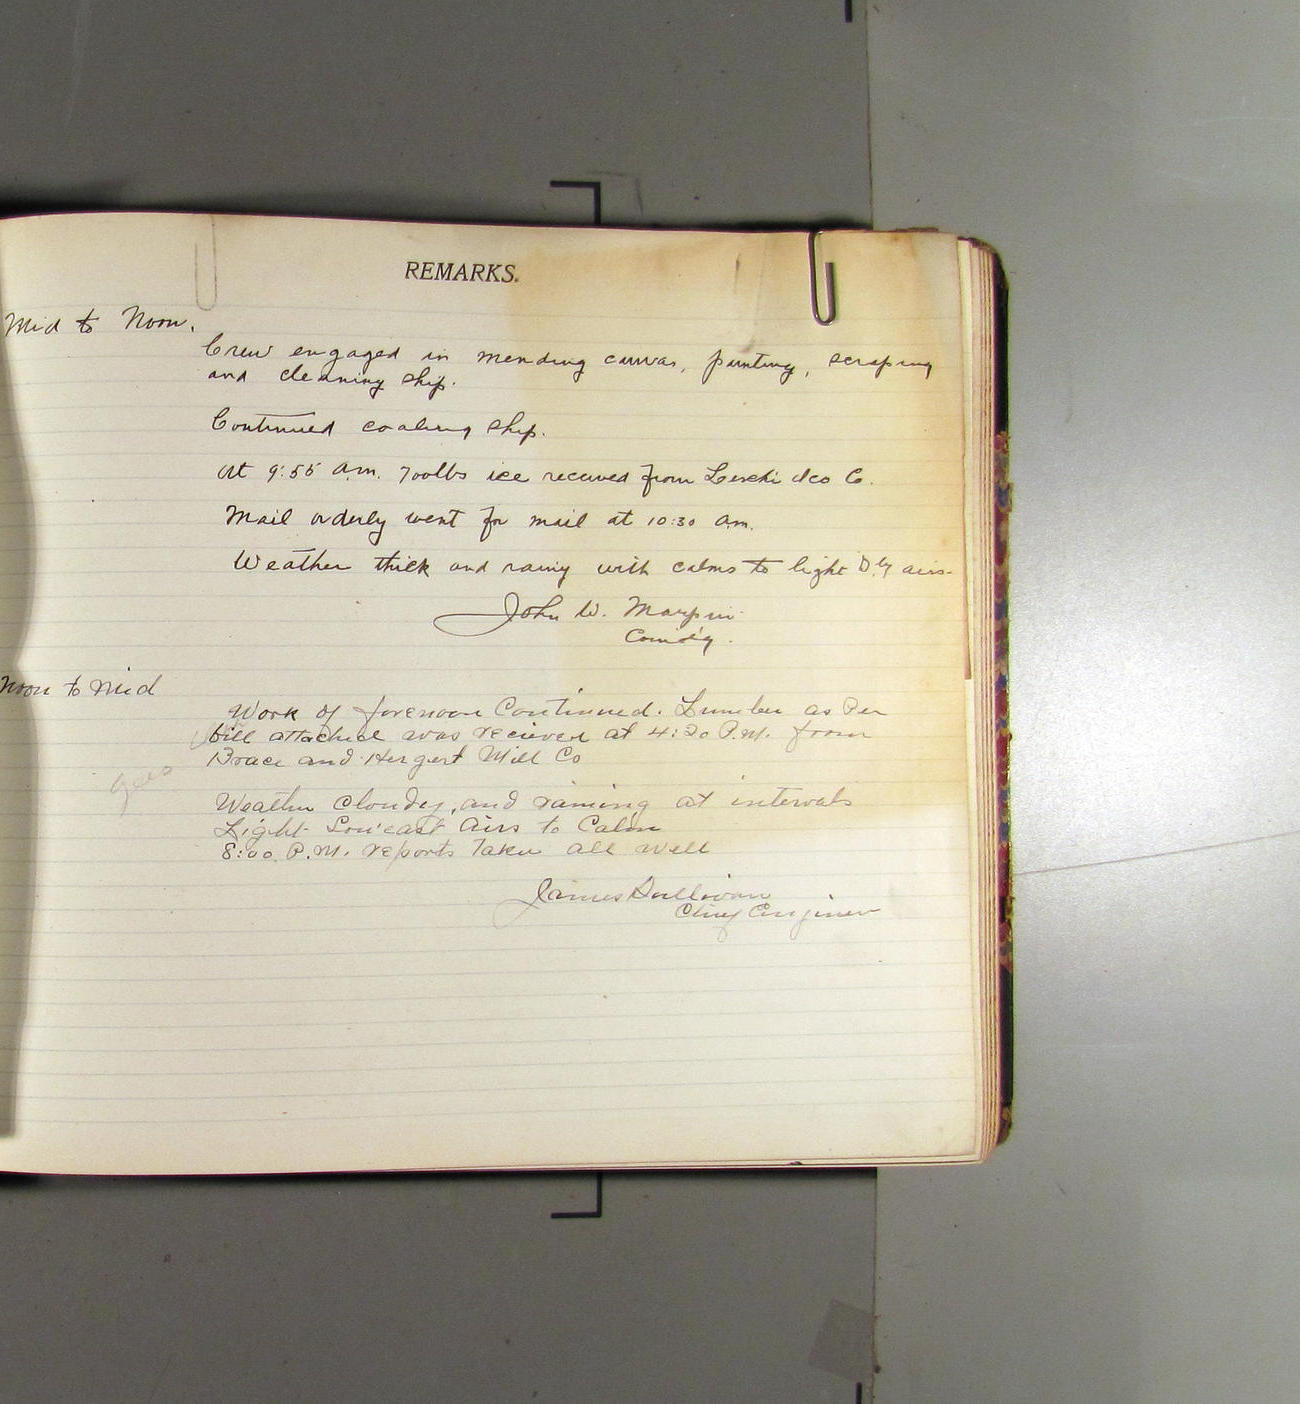 REMARKS.
Mid to Noon.
Crew engaged in mending canvas, painting, scraping
and cleaning ship.
Continued coaling ship.
At 9:55 a.m. 700lbs ice received from Leschi Ice Co.
Mail orderly went for mail at 10:30 a.m.
Weather thick and rainy with calms to light airs.
John W.
Comd'g.
Noon to Mid
Work of forenoon Continued. Lumber as Per
bill attached was recieved at 4:20 P.M. from
Brace and Hergert Mill Co
Weather Cloudy, and raining at intervals
Light Sou'east Airs to Calm
8:00 P.M. reports Taken all well
James Sullivan
Chief Engineer